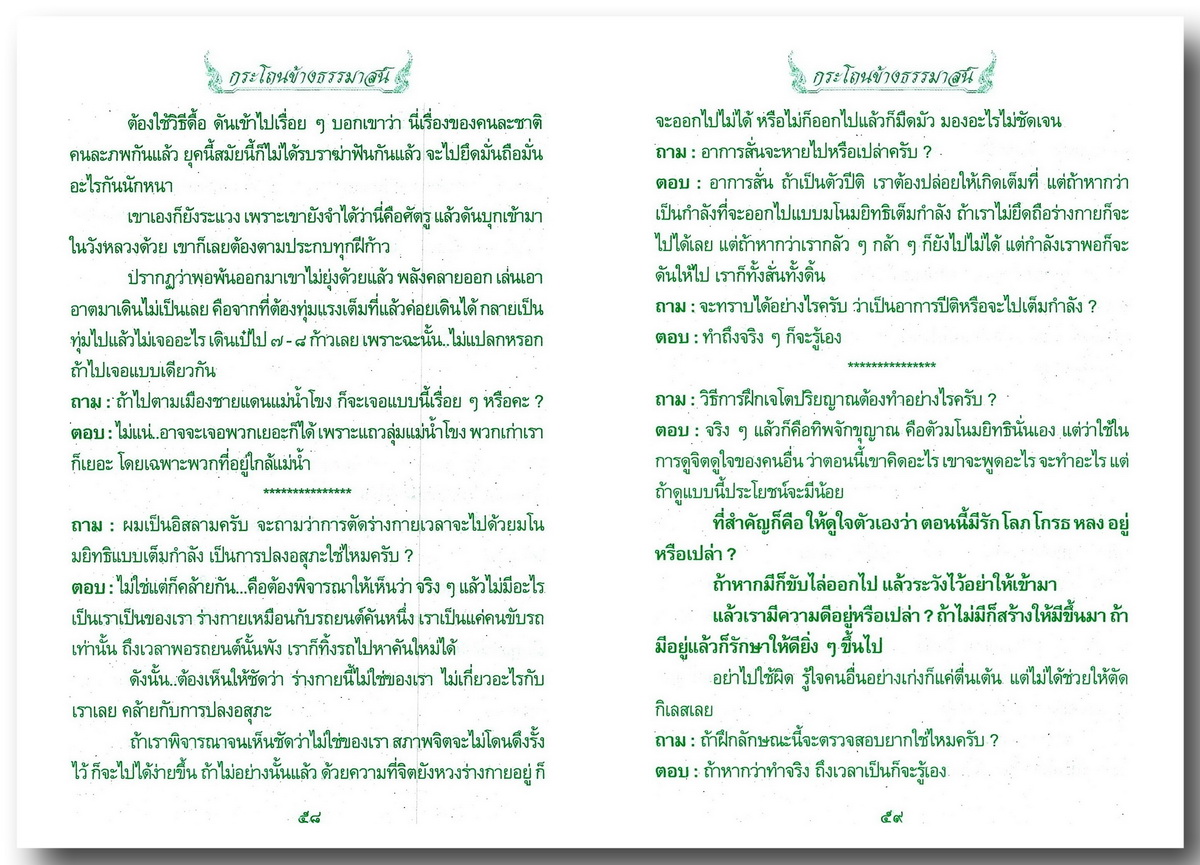 กระโถนข้างธรรมาสน์
ต้องใช้วิธีดื้อ ดันเข้าไปเรื่อย ๆ บอกเขาว่า นี่เรื่องของคนละชาติ
คนละภพกันแล้ว ยุคนี้สมัยนี้ก็ไม่ได้รบราฆ่าฟันกันแล้ว จะไปยึดมั่นถือมั่น
อะไรกันนักหนา
เขาเองก็ยังระแวง เพราะเขายังจำได้ว่านี่คือศัตรู แล้วดันบุกเข้ามา
ในวังหลวงด้วย เขาก็เลยต้องตามประกบทุกฝีก้าว
ปรากฏว่าพอพ้นออกมาเขาไม่ยุ่งด้วยแล้ว พลังคลายออก เล่นเอา
อาตมาเดินไม่เป็นเลย คือจากที่ต้องทุ่มแรงเต็มที่แล้วค่อยเดินได้ กลายเป็น
ทุ่มไปแล้วไม่เจออะไร เดินเป๋ไป ๗ - ๘ ก้าวเลย เพราะฉะนั้น..ไม่แปลกหรอก
ถ้าไปเจอแบบเดียวกัน
ถาม : ถ้าไปตามเมืองชายแดนแม่น้ำโขง ก็จะเจอแบบนี้เรื่อย ๆ หรือคะ ?
ตอบ : ไม่แน่..อาจจะเจอพวกเยอะก็ได้ เพราะแถวลุ่มแม่น้ำโขง พวกเก่าเรา
ก็เยอะ โดยเฉพาะพวกที่อยู่ใกล้แม่น้ำ
***************
ถาม : ผมเป็นอิสลามครับ จะถามว่าการตัดร่างกายเวลาจะไปด้วยมโน
มยิทธิแบบเต็มกำลัง เป็นการปลงอสุภะใช่ไหมครับ ?
ตอบ : ไม่ใช่แต่ก็คล้ายกัน...คือต้องพิจารณาให้เห็นว่า จริง ๆ แล้วไม่มีอะไร
เป็นเราเป็นของเรา ร่างกายเหมือนกับรถยนต์คันหนึ่ง เราเป็นแค่คนขับรถ
เท่านั้น ถึงเวลาพอรถยนต์นั้นพัง เราก็ทิ้งรถไปหาคันใหม่ได้
ดังนั้น..ต้องเห็นให้ชัดว่า ร่างกายนี้ไม่ใช่ของเรา ไม่เกี่ยวอะไรกับ
เราเลย คล้ายกับการปลงอสุภะ
ถ้าเราพิจารณาจนเห็นชัดว่าไม่ใช่ของเรา สภาพจิตจะไม่โดนดึงรั้ง
ไว้ ก็จะไปได้ง่ายขึ้น ถ้าไม่อย่างนั้นแล้ว ด้วยความที่จิตยังหวงร่างกายอยู่ ก็
๕๘
กระโถนข้างธรรมาสน์
จะออกไปไม่ได้ หรือไม่ก็ออกไปแล้วก็มืดมัว มองอะไรไม่ชัดเจน
ถาม : อาการสั่นจะหายไปหรือเปล่าครับ ?
ตอบ : อาการสั่น ถ้าเป็นตัวปีติ เราต้องปล่อยให้เกิดเต็มที่ แต่ถ้าหากว่า
เป็นกำลังที่จะออกไปแบบมโนมยิทธิเต็มกำลัง ถ้าเราไม่ยึดถือร่างกายก็จะ
ไปได้เลย แต่ถ้าหากว่าเรากลัว ๆ กล้า ๆ ก็ยังไปไม่ได้ แต่กำลังเราพอก็จะ
ดันให้ไป เราก็ทั้งสั่นทั้งดิ้น
ถาม : จะทราบได้อย่างไรครับ ว่าเป็นอาการปีติหรือจะไปเต็มกำลัง ?
ตอบ : ทำถึงจริง ๆ ก็จะรู้เอง
***************
ถาม : วิธีการฝึกเจโตปริยญาณต้องทำอย่างไรครับ ?
ตอบ : จริง ๆ แล้วก็คือทิพจักขุญาณ คือตัวมโนมยิทธินั่นเอง แต่ว่าใช้ใน
การดูจิตดูใจของคนอื่น ว่าตอนนี้เขาคิดอะไร เขาจะพูดอะไร จะทำอะไร แต่
ถ้าดูแบบนี้ประโยชน์จะมีน้อย
ที่สำคัญก็คือ ให้ดูใจตัวเองว่า ตอนนี้มีรัก โลภ โกรธ หลง อยู่
หรือเปล่า ?
ถ้าหากมีก็ขับไล่ออกไป แล้วระวังไว้อย่าให้เข้ามา
แล้วเรามีความดีอยู่หรือเปล่า ? ถ้าไม่มีก็สร้างให้มีขึ้นมา ถ้า
มีอยู่แล้วก็รักษาให้ดียิ่ง ๆ ขึ้นไป
อย่าไปใช้ผิด รู้ใจคนอื่นอย่างเก่งก็แค่ตื่นเต้น แต่ไม่ได้ช่วยให้ตัด
กิเลสเลย
ถาม : ถ้าฝึกลักษณะนี้จะตรวจสอบยากใช่ไหมครับ ?
ตอบ : ถ้าหากว่าทำจริง ถึงเวลาเป็นก็จะรู้เอง
๕๙